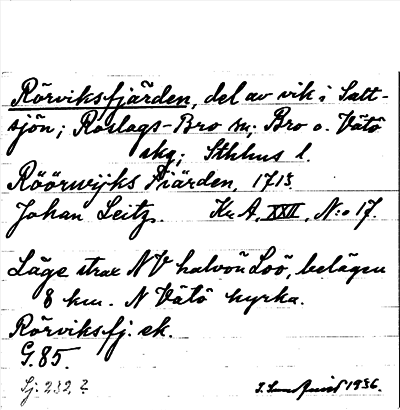 Rörviksfjärden, del av vik i Salt-
sjön; Roslags-Bro sn; Bro o. Vätö
skg; Sthlms l.
Röörwijks Fiärden, 1713.
Johan Leitz. Kr. A, XXII, N:o 17.
Läge strax NV halvön Loö, belägen
8 km. N Vätö kyrka.
Rörviksfj. ek.
G. 85.
Sj: 232 ?
1936.